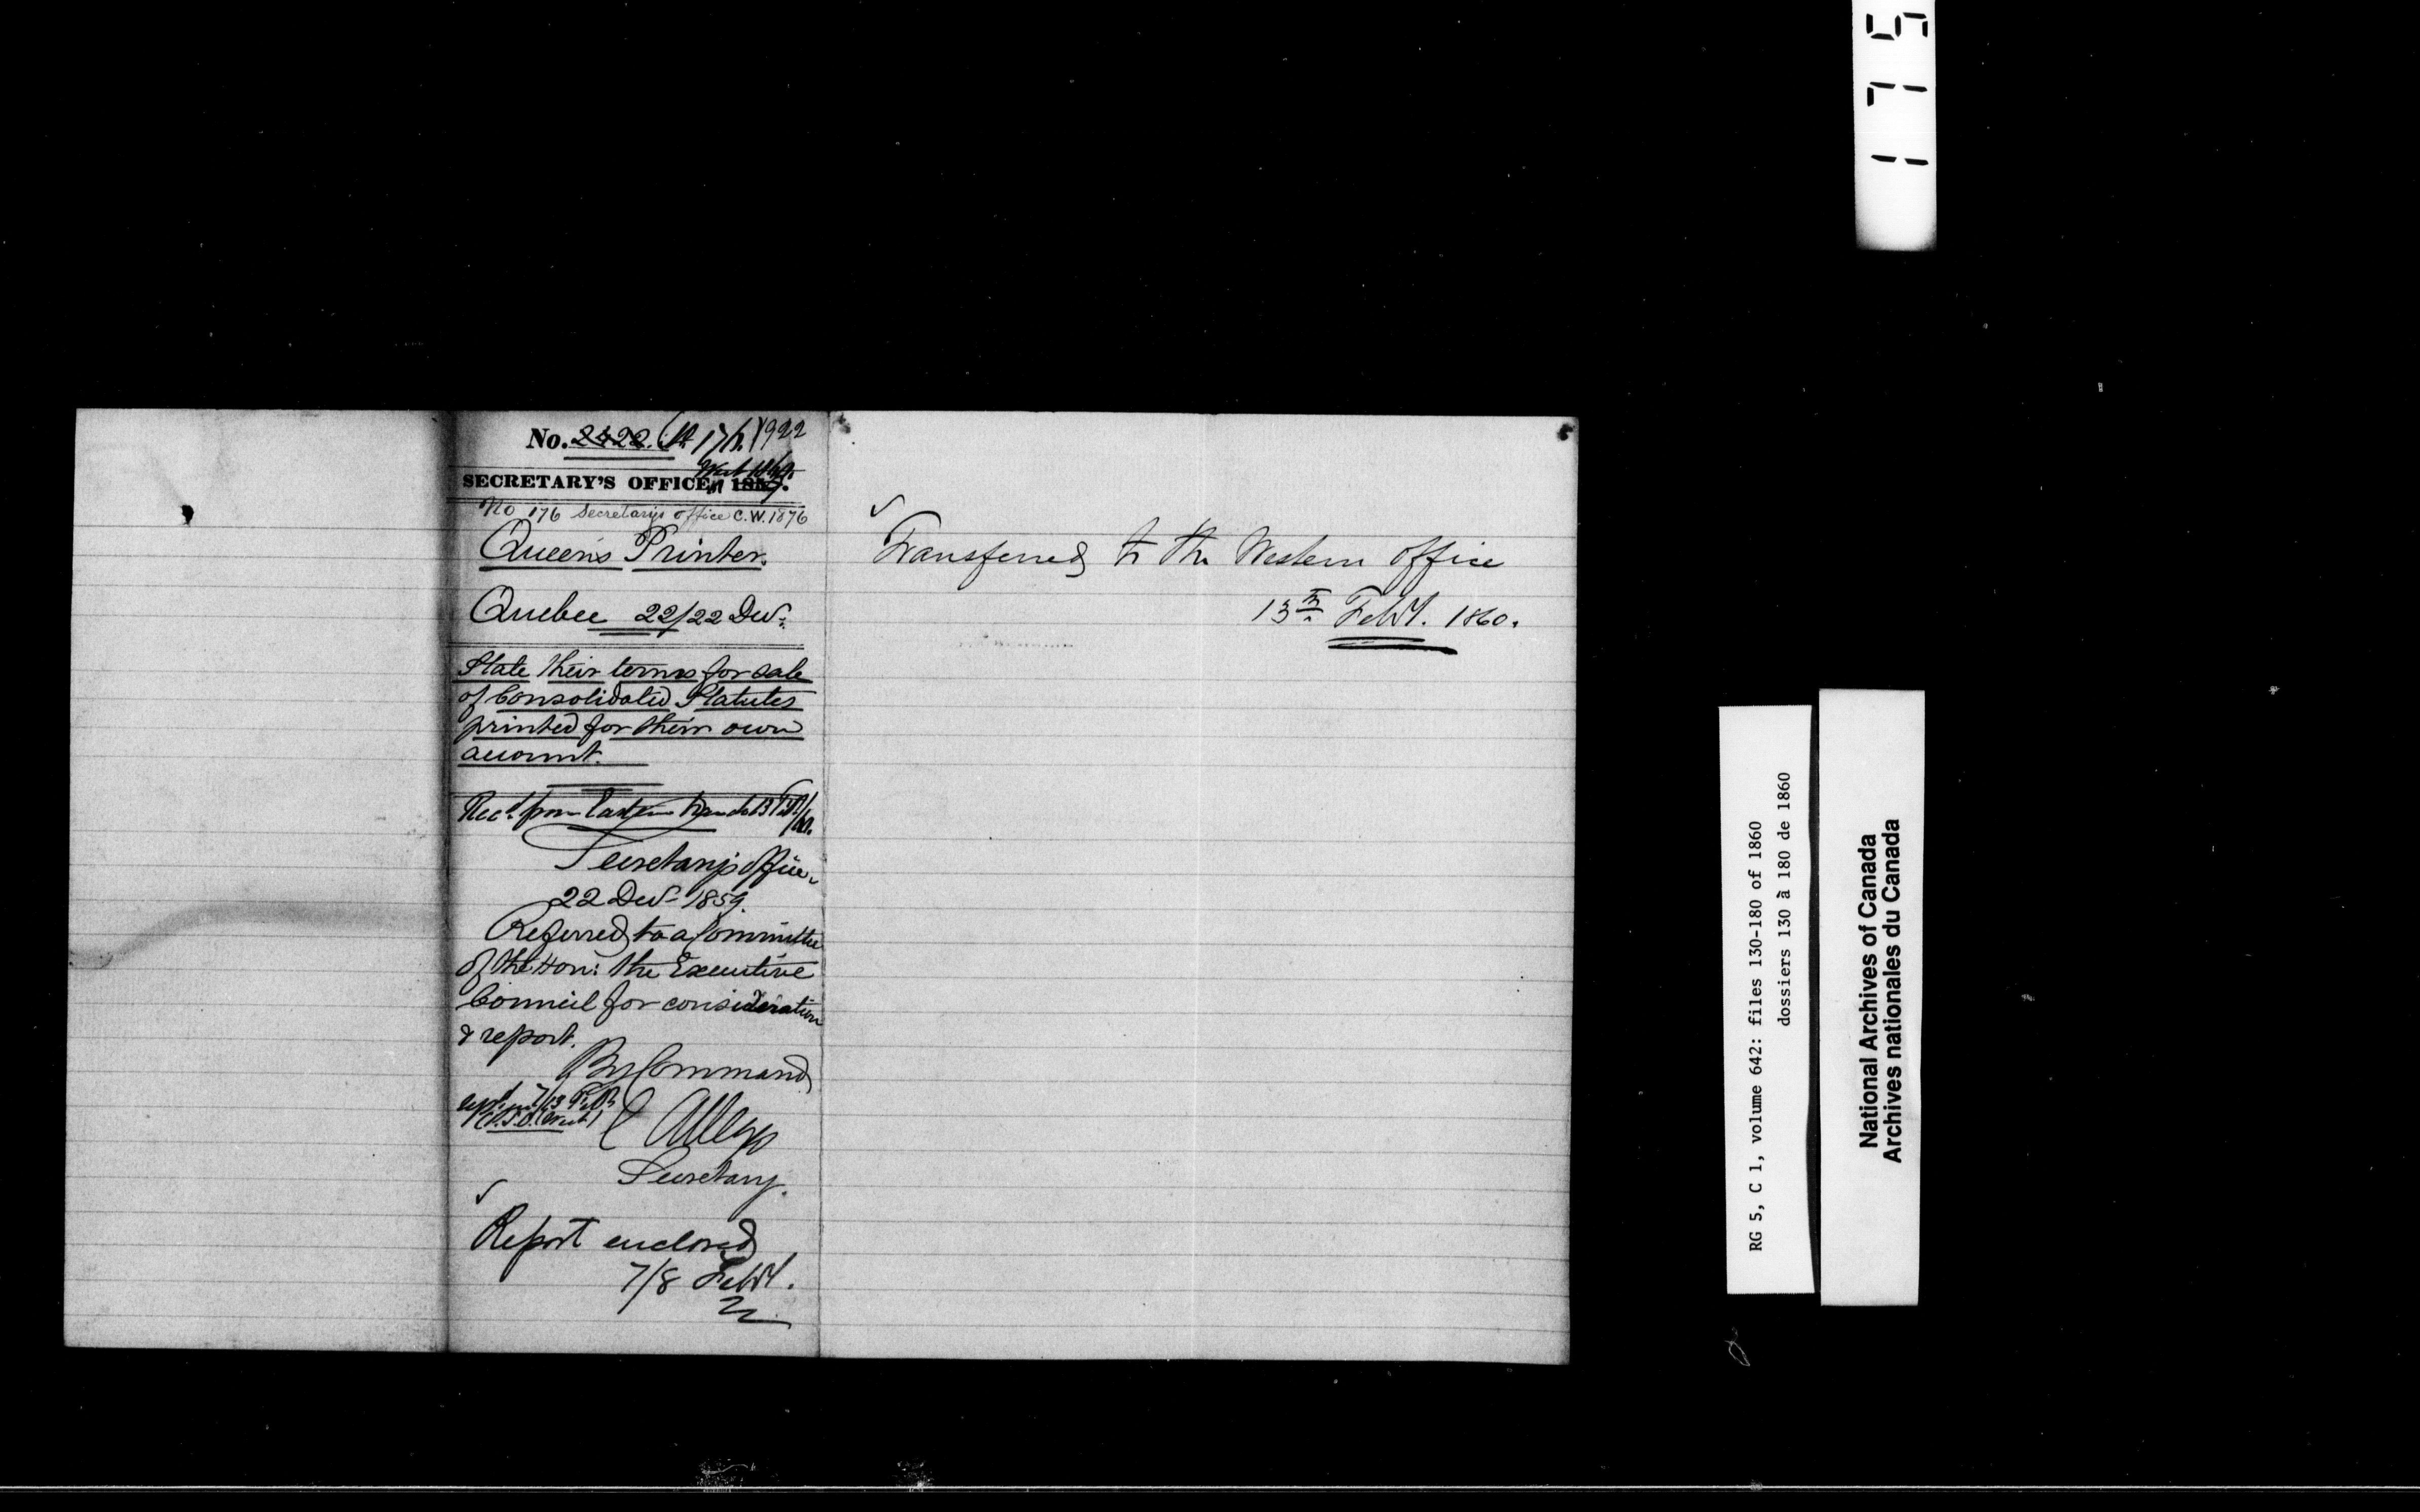 No. 2422. 1922
SECRETARY'S OFFICE,
No 176 Secretarys office C.W. 1876
Queen's Printer.
Quebec 22/22 Decr.
State their terms for sale
of Consolidated Statutes
printed for their own
account.
Recd. from Eastern Branch 13 Feb/60.
Secretary's Office.
22 Decr 1859.
Referred to a Committee
of the Hon: the Executive
Council for consideration
& report.
By Command
C Alleyn
Secretary.
Report enclosed
7/8 Feby.
Transferred to the Western Office
13th Feby. 1860.
1715
RG 5, C 1, volume 642: files 130-180 of 1860
dossiers 130 à 180 de 1860
National Archives of Canada
Archives nationales du Canada